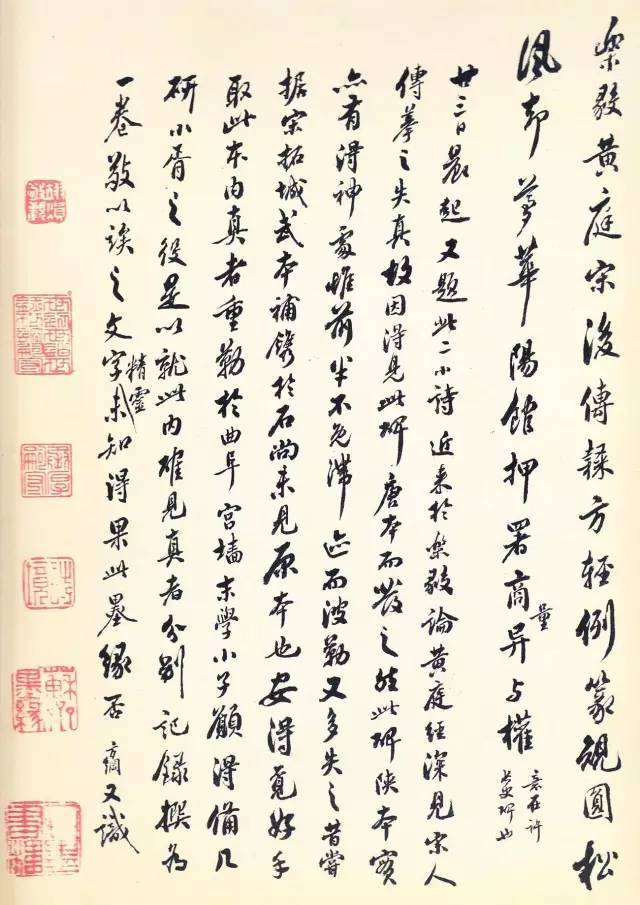 樂毅黃庭宋後傳隸方輕例篆規圓松
風却夢華陽館押署商量異與權
意在許
長史碑也
廿三日晨起又題此二小詩近來於樂毅論黃庭經深見宋人
傳摹之失真故因得見此碑唐本而發之然此碑陝本實
亦有得神處惟前半不免滯迹而波勒又多失之昔嘗
據宋拓城武本補鐫於石尚未見原本也安得覓好手
取此本内真者重勒於曲阜宮墻末學小子願得備几
研小胥之役是以就此内確見真者分別記錄撰為
一卷敬以俟之文字精靈未知得果此墨緣否 方綱又識
蘇齋墨緣